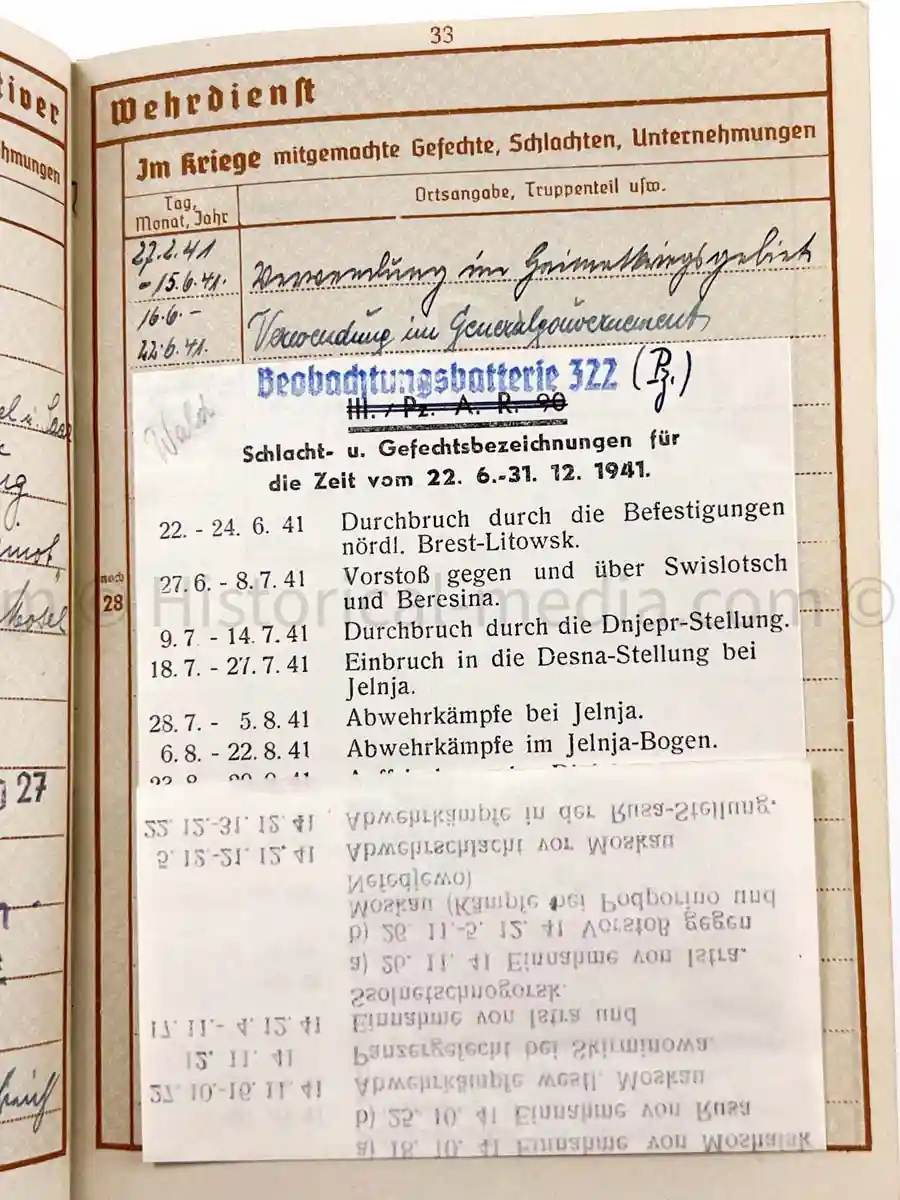 33
Wehrdienst
Im Kriege mitgemachte Gefechte, Schlachten, Unternehmungen
Tag,
Monat, Jahr
Ortsangabe, Truppenteil usw.
27.2.41
- 15.6.41.
Verwendung im Heimatkriegsgebiet
16.6. -
22.6.41.
Verwendung im Generalgouvernement
Beobachtungsbatterie 322 (Pz.)
III. / Pz. A. R. 90
Schlacht- u. Gefechtsbezeichnungen für
die Zeit vom 22. 6.-31. 12. 1941.
22. - 24. 6. 41 Durchbruch durch die Befestigungen
nördl. Brest-Litowsk.
27. 6. - 8. 7. 41 Vorstoß gegen und über Swislotsch
und Beresina.
9. 7. - 14. 7. 41 Durchbruch durch die Dnjepr-Stellung.
18. 7. - 27. 7. 41 Einbruch in die Desna-Stellung bei
Jelnja.
28. 7. - 5. 8. 41 Abwehrkämpfe bei Jelnja.
6. 8. - 22. 8. 41 Abwehrkämpfe im Jelnja-Bogen.
noch
28
a) 18. 10. 41 Einnahme von Moshaisk
b) 25. 10. 41 Einnahme von Rusa
27. 10.-16. 11. 41 Abwehrkämpfe westl. Moskau
12. 11. 41 Panzergefecht bei Skirminowa.
17. 11.- 4. 12. 41 Einnahme von Istra und
Ssolnetschnogorsk.
a) 26. 11. 41 Einnahme von Istra.
b) 26. 11.-5. 12. 41 Vorstoß gegen
Moskau (Kämpfe bei Podporino und
Nefedjewo)
5. 12.-21. 12. 41 Abwehrschlacht vor Moskau
22. 12.-31. 12. 41 Abwehrkämpfe in der Rusa-Stellung.
tiver
hmungen
Mosel
27
© Historicalmedia.com ©